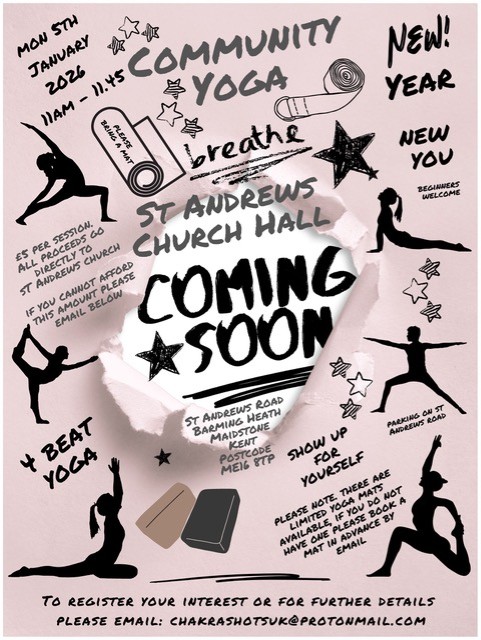 MON 5TH
JANUARY
2026
11AM - 11.45
COMMUNITY
YOGA
NEW!
YEAR
NEW
YOU
BEGINNERS
WELCOME
PLEASE
BRING A MAT
breathe
ST ANDREWS
CHURCH HALL
£5 PER SESSION.
ALL PROCEEDS GO
DIRECTLY TO
ST ANDREWS CHURCH
IF YOU CANNOT AFFORD
THIS AMOUNT PLEASE
EMAIL BELOW
COMING
SOON
PARKING ON ST
ANDREWS ROAD
4 BEAT
YOGA
ST ANDREWS ROAD
BARMING HEATH
MAIDSTONE
KENT
POSTCODE
ME16 8TP
SHOW UP
FOR
YOURSELF
PLEASE NOTE, THERE ARE
LIMITED YOGA MATS
AVAILABLE, IF YOU DO NOT
HAVE ONE PLEASE BOOK A
MAT IN ADVANCE BY
EMAIL
TO REGISTER YOUR INTEREST OR FOR FURTHER DETAILS
PLEASE EMAIL: CHAKRASHOTSUK@PROTONMAIL.COM